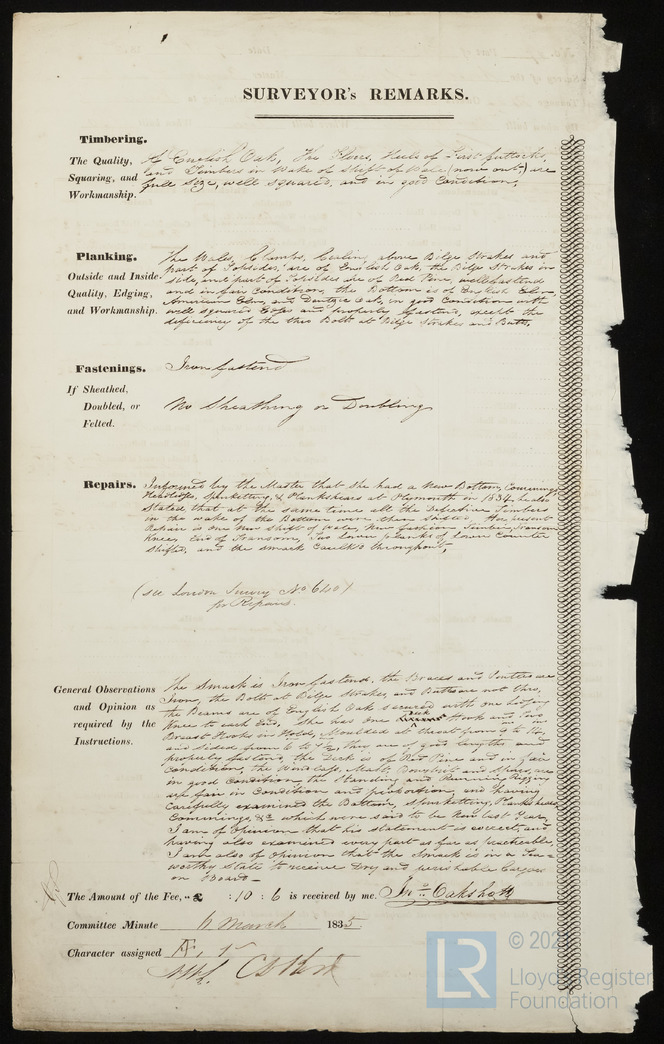 SURVEYOR's REMARKS.
Timbering.
The Quality,
Squaring, and
Workmanship.
of English Oak, The Floors, Heels of First futtocks,
and Timbers in Wake of Shift of Wale (now out,) are
full size, well squared, and in good Condition,
Planking.
Outside and Inside
Quality, Edging,
and Workmanship.
The Wales, Clamps, Ceilin, above Bilge Strakes and
part of Topsides, are of English Oak, the Bilge Strakes in
side, and part of Topsides are of Red Pine, well fastend
and in fair Condition, the Bottom is of English Elm,
American Elm, and Dantzic Oak, in good Condition with
well squared Edges and properly fastend, except the
deficiency of the thro Bolt at Bilge Strakes and Butts,
Fastenings.
Iron fastend
If Sheathed,
Doubled, or
Felted.
No Sheathing or Doubling
Repairs.
Informed by the Master that she had a New Bottom, Commings
Headledges, Spirketting, & Plankshears at Plymouth in 1834. he also
Stated that at the same time all the Defective Timbers
in the wake of the Bottom were then shifted, Her present
Repair is one new shift of Wales, New fashion Timber, Transom
Knees, End of Transom, Two lower planks of lower Counter
shifted, and the smack Caulk'd throughout,
(see London Survey No 640)
for Repairs.
General Observations
and Opinion as
required by the
Instructions.
The Smack is Iron fastend. the Braces and Pintles are
Iron, the Bolt at Bilge Strakes, and Butts are not thro,
the Beams are of English Oak secured with one lodging
Knee to each End, She has one Deck Hook and Two
Breast Hooks in Hold, Moulded at throat from 9 to 12,
and sided from 6 to 7½, they are of good lengths and
properly fastend, the Deck is of Red Pine and in fair
Condition, the Windlass, Mast, Bowsprit and are
in good Condition the Standing and Running Rigging
are fair in Condition and proportion, and having
Carefully examined the Bottom, Spirketting, Plankshears
Commings, &c which were said to be New last Year,
I am of Opinion that his statement is correct, and
having also examined every part as far as practicable,
I am also of Opinion that the Smack is in a Sea-
worthy State to receive Dry and perishable Cargoes
on Board—
The Amount of the Fee, £ : 10 : 6 is received by me. Jno Oakshott
Committee Minute 6 March 1835
Character assigned Æ, 1
© 202
LR
Lloyd's Register
Foundation